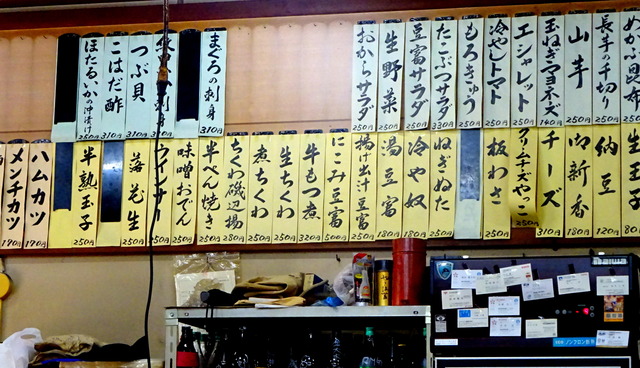 ほたるいかの沖漬け 250
こはだ酢 310
つぶ貝 310
310
まぐろの刺身 310円
おからサラダ 250円
生野菜 250円
豆富サラダ 250円
たこぶつサラダ 330円
もろきゅう 250円
冷やしトマト 250円
エシャレット 250円
玉ねぎマヨネーズ 140円
山芋 250円
長芋の千切り 250円
めかぶ昆布 250円
メンチカツ 170円
ハムカツ 170円
半熟玉子 250円
落花生 250円
ウインナー 250円
味噌おでん 250円
半ぺん焼き 250円
ちくわ磯辺揚 280円
煮ちくわ 250円
生ちくわ 250円
牛もつ煮 320円
にこみ豆富 250円
揚げ出汁豆富 250円
湯豆富 180円
冷や奴 180円
ねぎぬた 250円
板わさ 250円
クリームチーズやっこ 250円
チーズ 310円
御新香 180円
納豆 120円
生玉子 80円
ノンフロン